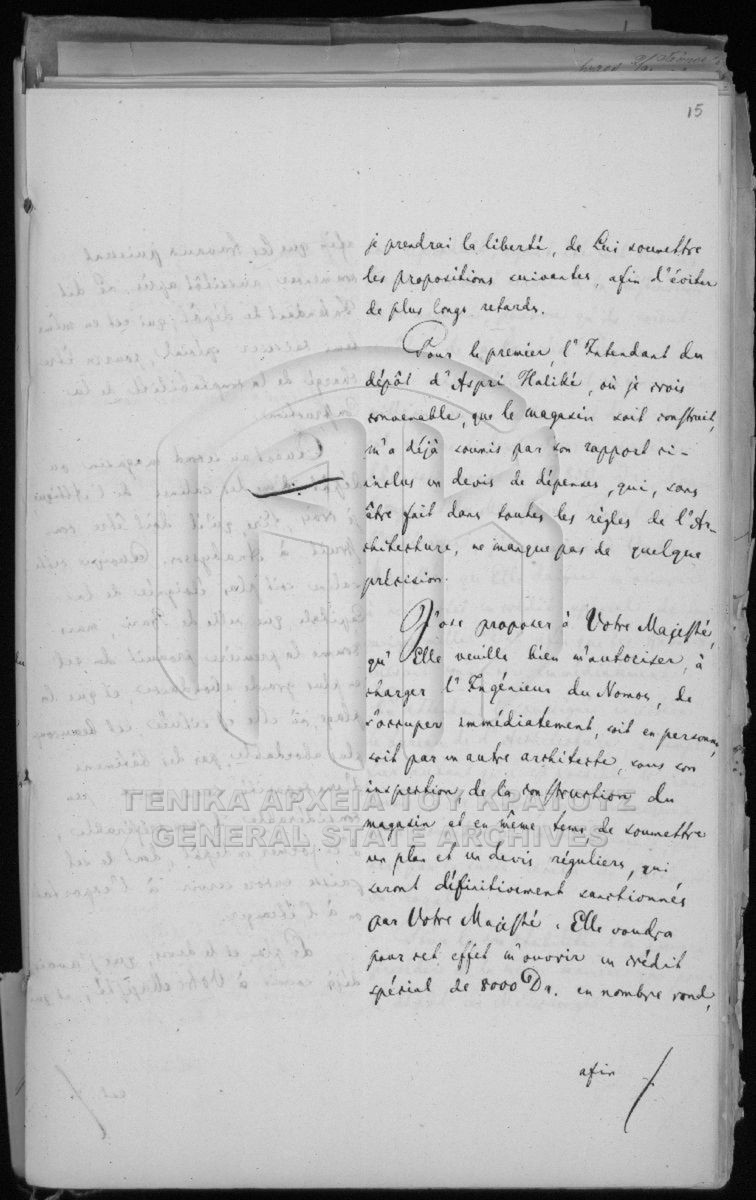 15
je prendrai la liberté, de Lui soumettre
les propositions suivantes, afin d'éviter
de plus longs retards.
Pour le premier, l'Intendant du
dépôt d'Aspri Haliki, où je crois
convenable, que le magasin soit construit,
m'a déjà soumis par son rapport ci-
inclus un devis de dépenses, qui, sans
être fait dans toutes les règles de l'Ar-
chitecture, ne manque pas de quelque
précision.
J'ose proposer à Votre Majesté,
qu'Elle veuille bien m'autoriser, à
charger l'Ingénieur du Nomos, de
s'occuper immédiatement, soit en personne,
soit par un autre architecte, sous son
inspection, de la construction du
magasin et en même tems de soumettre
un plan et un devis réguliers, qui
seront définitivement sanctionnés
par Votre Majesté. Elle voudra
pour cet effet m'ouvrir un crédit
spécial de 8000 Dr. en nombre rond,
afin
ΓΕΝΙΚΑ ΑΡΧΕΙΑ ΤΟΥ ΚΡΑΤΟΥΣ
GENERAL STATE ARCHIVES